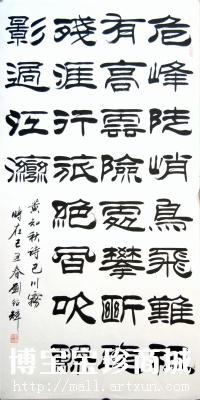 危峰陡峭鳥飛難
有高雲險處攀斷
殘涯行旅絕風吹
影過江灣
黃知秋詩巴川霧
時在己丑春劉
博宝 珍商城
http://mall.artxun.com